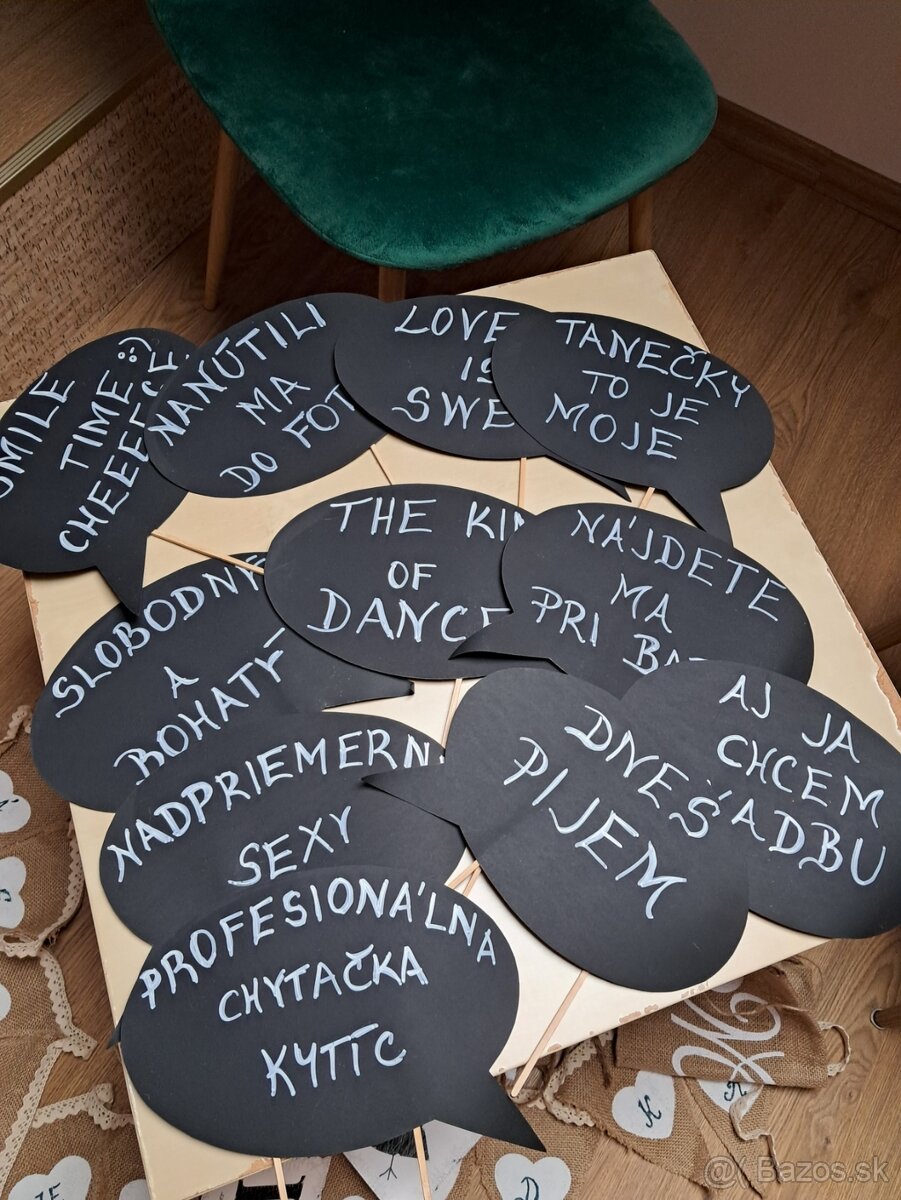 SMILE
TIME :)
NANÚTILI
MA
DO FOT
LOVE
IS
SWE
TANEČKY
TO JE
MOJE
THE KIN
OF
DANCE
NÁJDETE
MA
PRI BA
SLOBODNÝ
A
BOHATÝ
NADPRIEMERN
SEXY
DNEŠ
PIJEM
AJ JA
CHCEM
ADBU
PROFESIONÁLNA
CHYTAČKA
KYTÍC
H
K
D
@( Bazos.sk